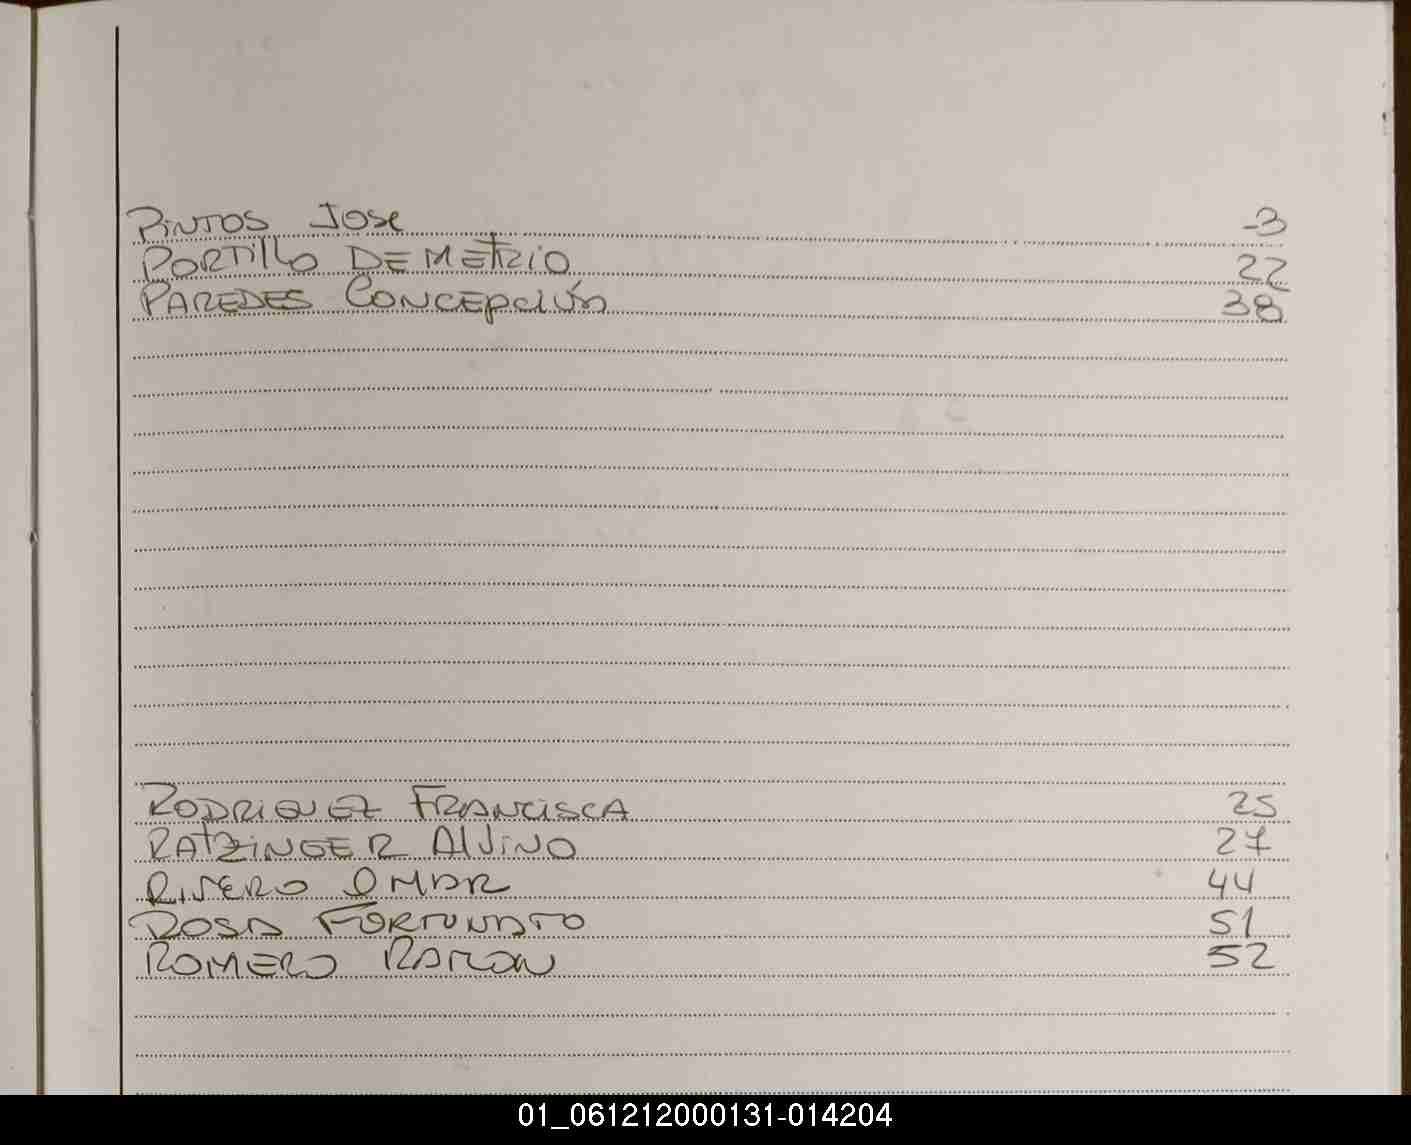 Pintos Jose -3
Portillo Demetrio 22
Paredes Concepción 38
Rodriguez Francisca 25
Ratzinger Alvino 27
Rivero Omar 44
Rosa Fortunato 51
Romero Ramon 52
01_061212000131-014204